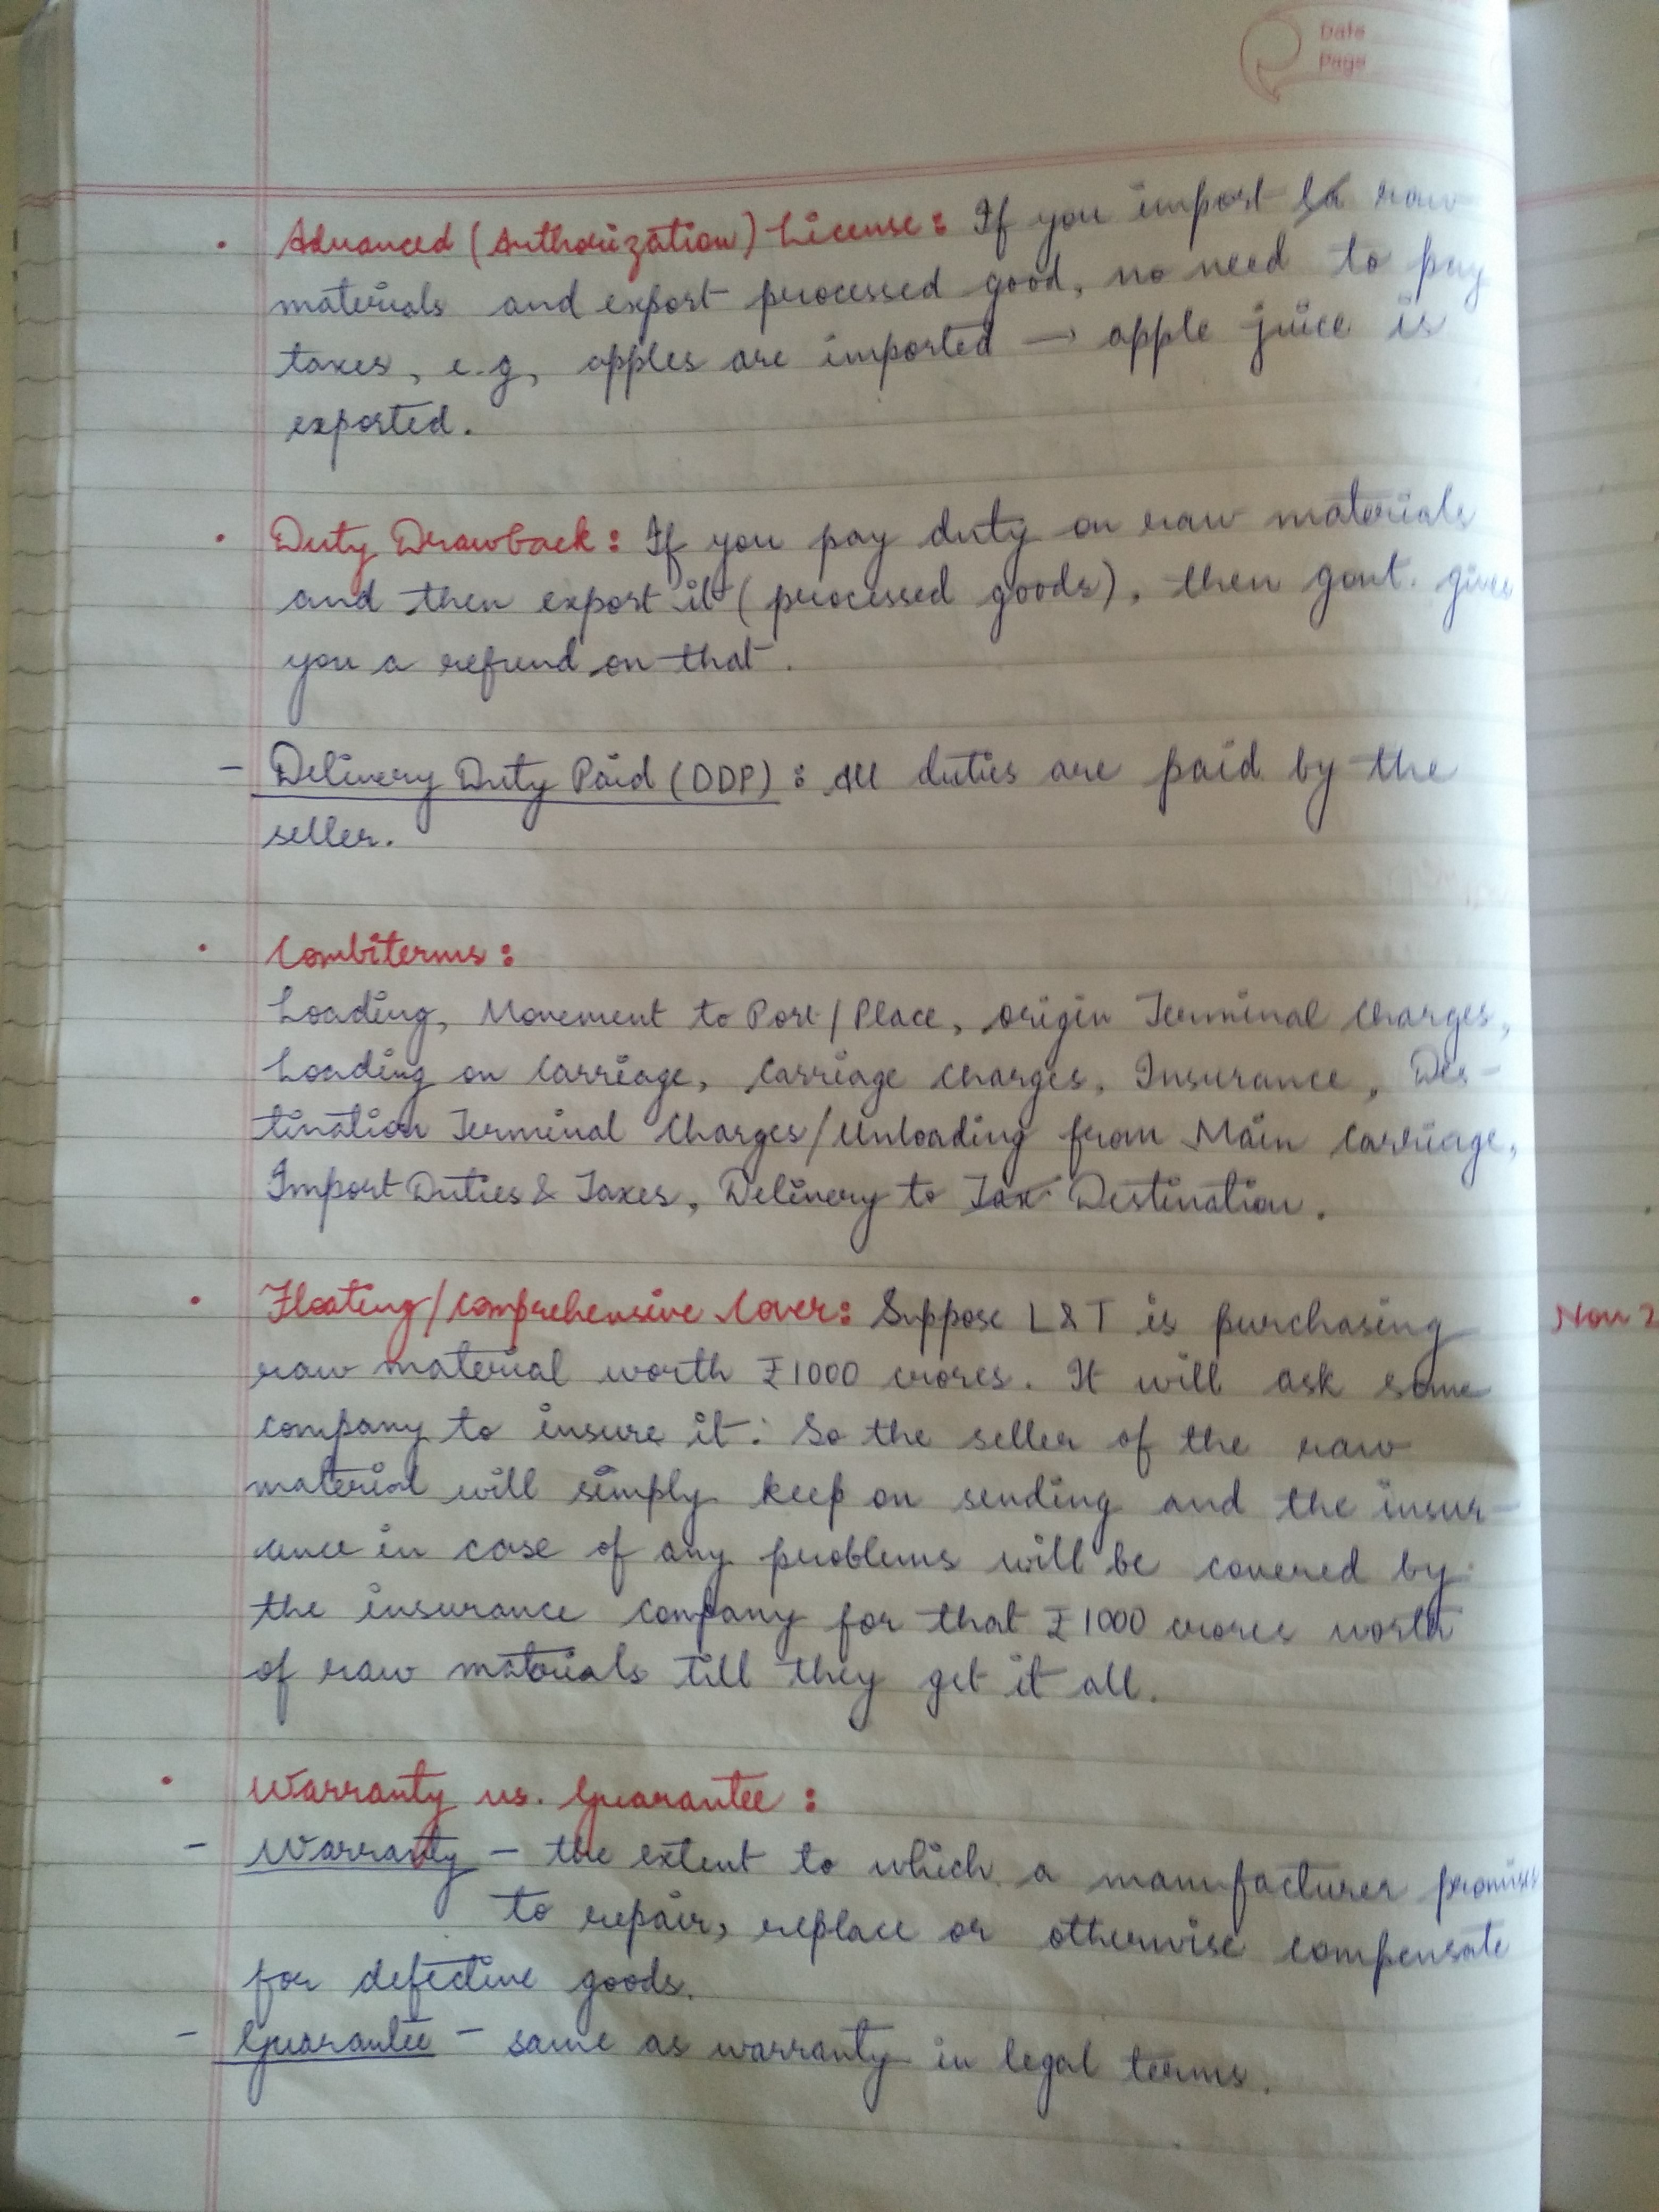 Date
Page
• Advanced (Authorization) License: If you import raw
materials and export processed good, no need to pay
taxes, e.g, apples are imported → apple juice is
exported.
• Duty Drawback: If you pay duty on raw materials
and then export it (processed goods), then govt. gives
you a refund on that.
- Delivery Duty Paid (DDP): All duties are paid by the
seller.
• Combiterms:
Loading, Movement to Port/Place, Origin Terminal Charges,
Loading on Carriage, Carriage Charges, Insurance, Des-
tination Terminal Charges/Unloading from Main Carriage,
Import Duties & Taxes, Delivery to Tax Destination.
• Floating/Comprehensive Cover: Suppose L&T is purchasing
raw material worth ₹1000 crores. It will ask some
company to insure it. So the seller of the raw
material will simply keep on sending and the insur-
ance in case of any problems will be covered by
the insurance company for that ₹1000 crores worth
of raw materials till they get it all.
• Warranty vs. Guarantee:
- Warranty - the extent to which a manufacturer promises
to repair, replace or otherwise compensate
for defective goods.
- Guarantee - same as warranty in legal terms.
Nov 2